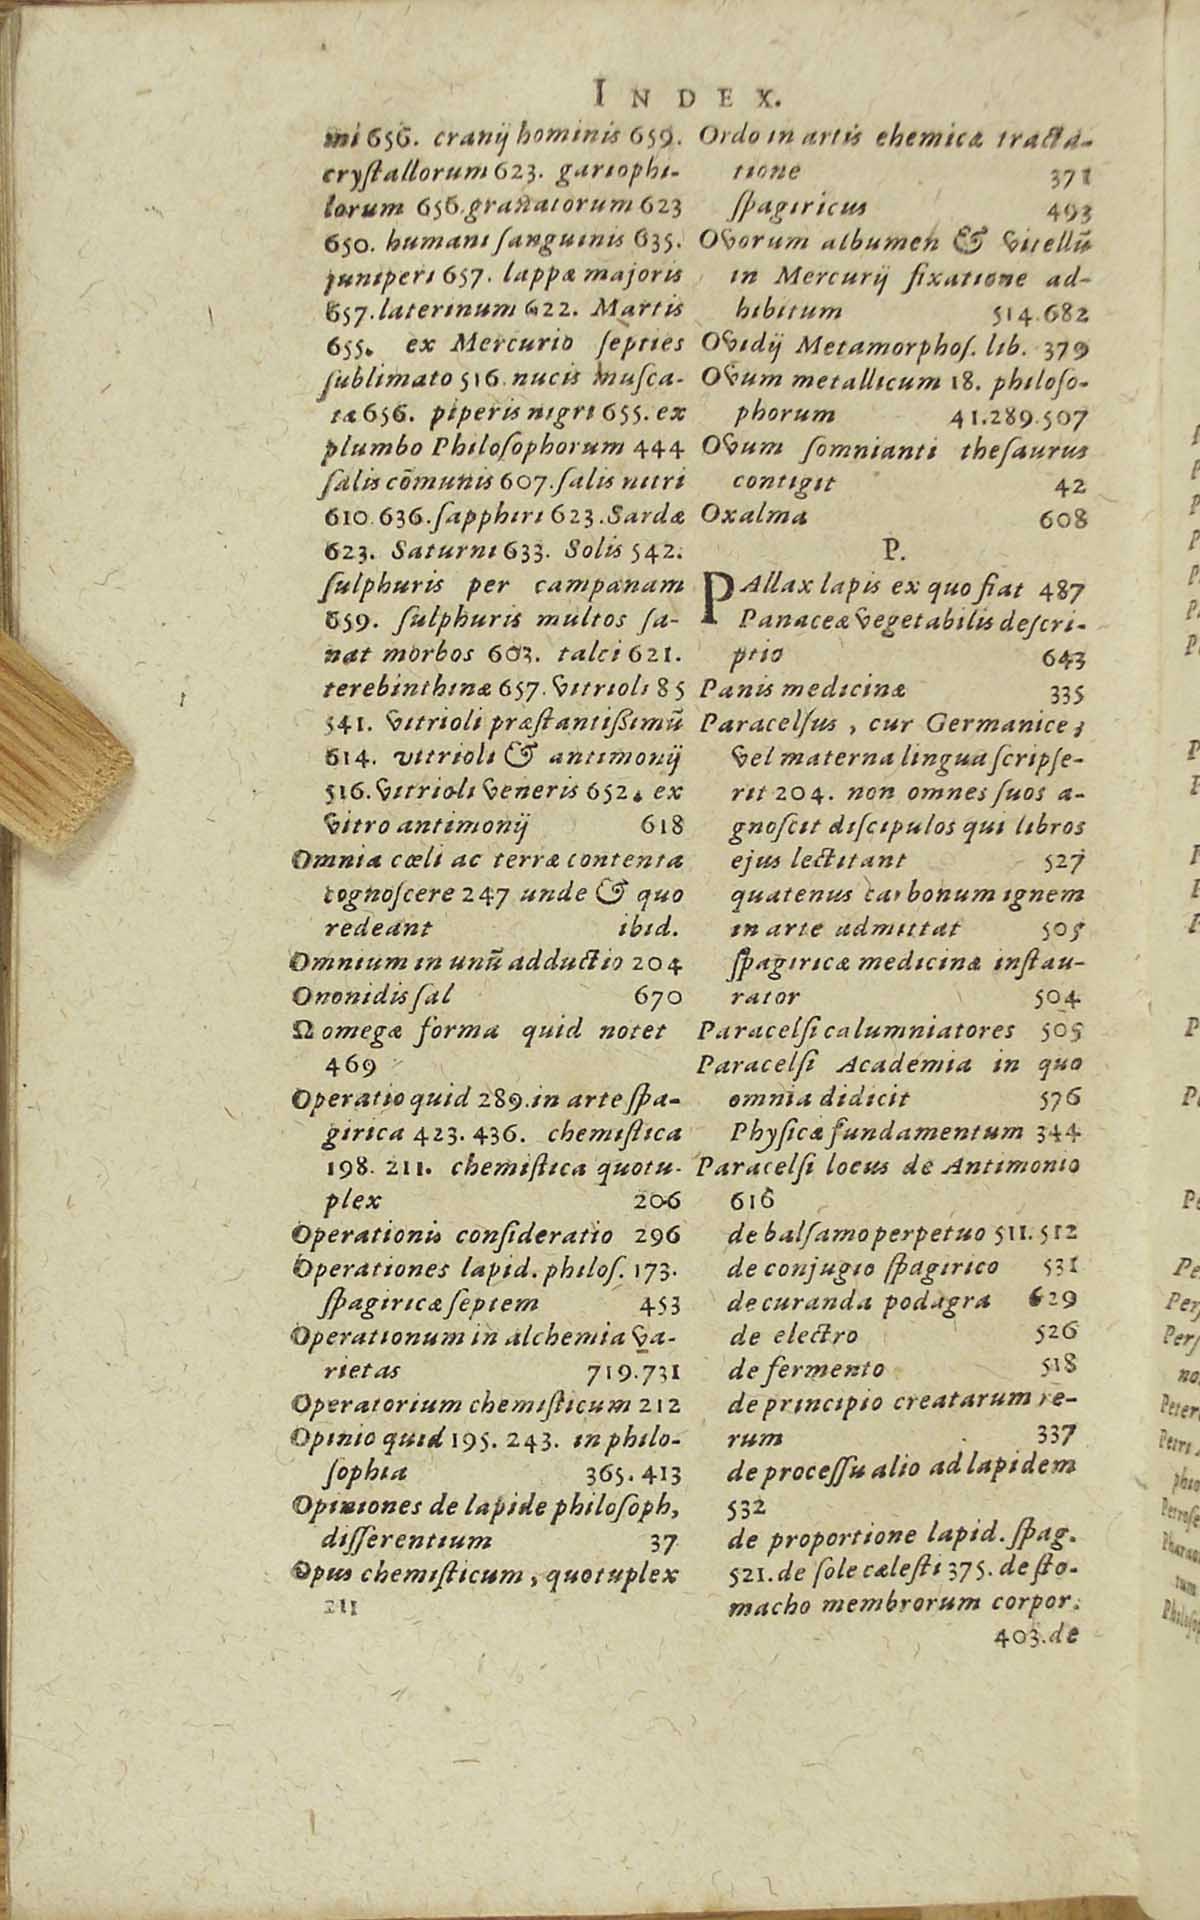 INDEX.
mi 656. cranij hominis 659.
cryſtallorum 623. gariophi-
lorum 656. granatorum 623
650. humani ſanguinis 635.
juniperi 657. lappæ majoris
657. laterinum 622. Martis
655. ex Mercurio ſepties
ſublimato 516. nucis muſca-
tæ 656. piperis nigri 655. ex
plumbo Philoſophorum 444
ſalis cōmunis 607. ſalis nitri
610. 636. ſapphiri 623. Sardæ
623. Saturni 633. Solis 542.
ſulphuris per campanam
659. ſulphuris multos ſa-
nat morbos 603. talci 621.
terebinthinæ 657. vitrioli 85
541. vitrioli præſtantiſsimū
614. vitrioli & antimonij
516. vitrioli veneris 652. ex
vitro antimonij 618
Omnia cœli ac terræ contenta
cognoſcere 247 unde & quo
redeant ibid.
Omnium in unū adductio 204
Ononidis ſal 670
Ω omegæ forma quid notet
469
Operatio quid 289. in arte ſpa-
girica 423. 436. chemiſtica
198. 211. chemiſtica quotu-
plex 206
Operationis conſideratio 296
Operationes lapid. philoſ. 173.
ſpagiricæ ſeptem 453
Operationum in alchemia va-
rietas 719. 731
Operatorium chemiſticum 212
Opinio quid 195. 243. in philo-
ſophia 365. 413
Opiniones de lapide philoſoph,
differentium 37
Opus chemiſticum, quotuplex
211
Ordo in artis chemicæ tracta-
tione 371
ſpagiricus 493
Ovorum albumen & vitellū
in Mercurij fixatione ad-
hibitum 514. 682
Ovidij Metamorphoſ. lib. 379
Ovum metallicum 18. philoſo-
phorum 41. 289. 507
Ovum ſomnianti theſaurus
contigit 42
Oxalma 608
P.
PAllax lapis ex quo fiat 487
Panaceæ vegetabilis deſcri-
ptio 643
Panis medicinæ 335
Paracelſus, cur Germanice,
vel materna lingua ſcripſe-
rit 204. non omnes ſuos a-
gnoſcit diſcipulos qui libros
ejus lectitant 527
quatenus carbonum ignem
in arte admittat 505
ſpagiricæ medicinæ inſtau-
rator 504
Paracelſi calumniatores 505
Paracelſi Academia in quo
omnia didicit 576
Phyſicæ fundamentum 344
Paracelſi locus de Antimonio
616
de balſamo perpetuo 511. 512
de conjugio ſpagirico 531
de curanda podagra 629
de electro 526
de fermento 518
de principio creatarum re-
rum 337
de proceſſu alio ad lapidem
532
de proportione lapid. ſpag.
521. de ſole cæleſti 375. de ſto-
macho membrorum corpor.
403. de